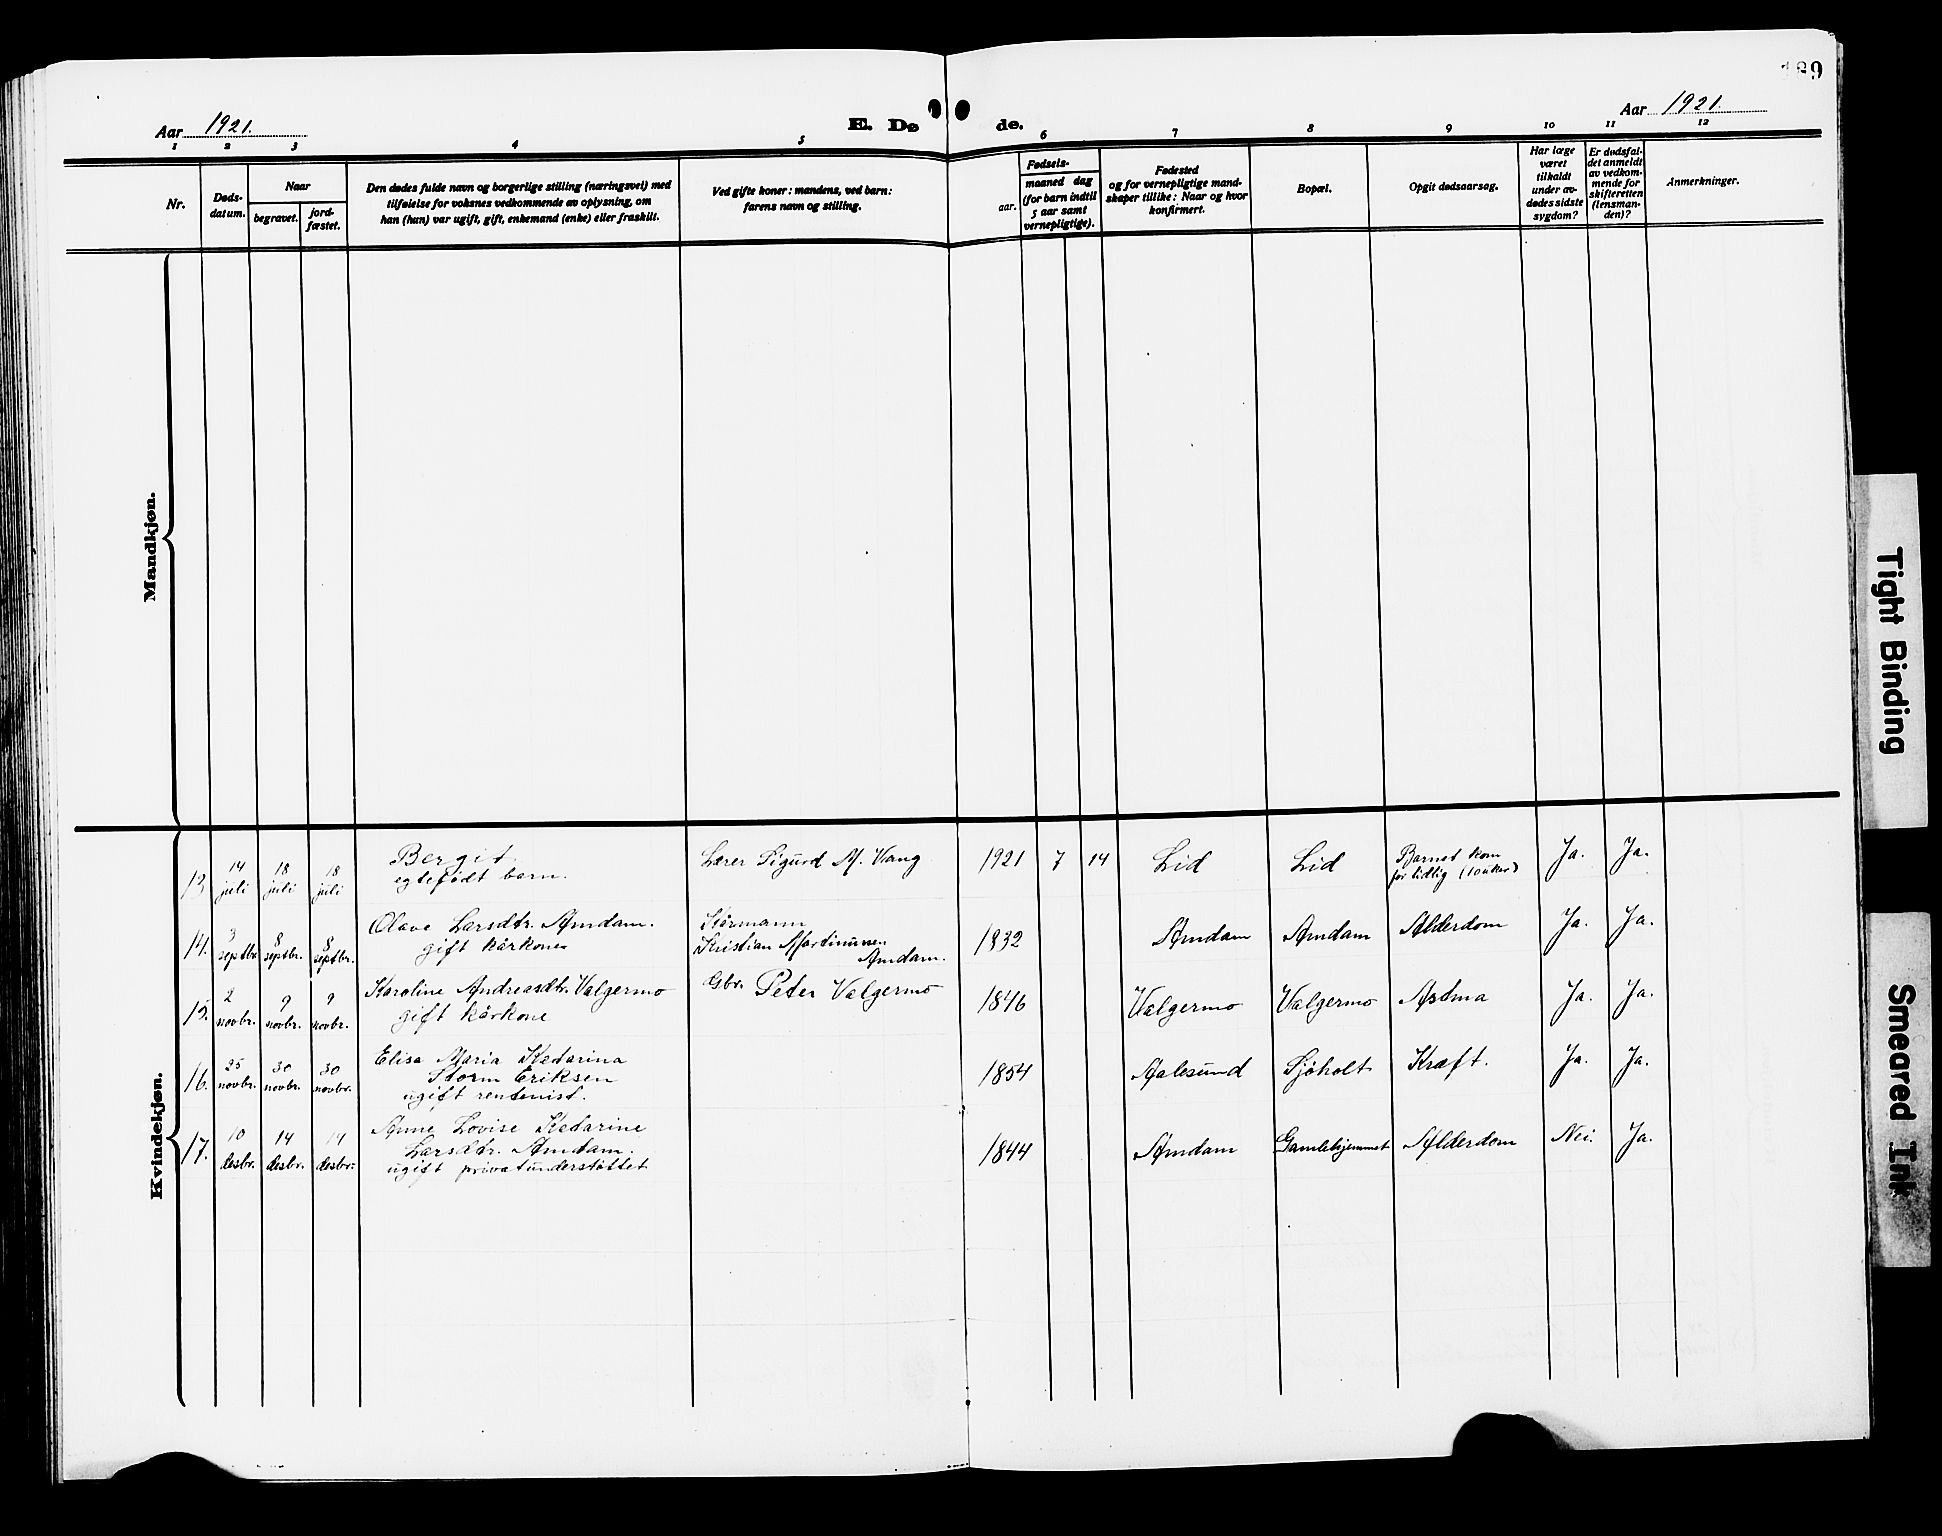 189
Aar 1921.
E. Dø
de.
Aar 1921.
1 2 3 4 5 6 7 8 9 10 11 12
Nr.
Døds-
datum.
Naar
begravet.
jord-
fæstet.
Den dødes fulde navn og borgerlige stilling (næringsvei) med
tilføielse for voksnes vedkommende av oplysning, om
han (hun) var ugift, gift, enkemand (enke) eller fraskilt.
Ved gifte koner: mandens, ved barn:
farens navn og stilling.
Fødsels-
aar.
maaned dag
(for barn indtil
5 aar samt
vernepligtige).
Fødested
og for vernepligtige mand-
skaper tillike: Naar og hvor
konfirmert.
Bopæl.
Opgit dødsaarsag.
Har læge
været
tilkaldt
under av-
dødes sidste
sygdom?
Er dødsfal-
det anmeldt
av vedkom-
mende for
skifteretten
(lensman-
den)?
Anmerkninger.
Mandkjøn.
Kvindekjøn.
13
14
juli
18
juli
18
juli
Bergit
egtefødt barn.
Lærer Sigurd M. Vang
1921 7 14
Lid
Lid
Barnet kom
for tidlig (10 uker)
Ja.
Ja.
14.
3
septbr.
8
septbr.
8
septbr.
Olave Larsdtr. Amdam.
gift kårkone
Kårmann
Kristian Martinussen
Amdam.
1832
Amdam
Amdam
Alderdom
Ja.
Ja.
15.
2
novbr.
9
novbr.
9
novbr.
Karoline Andreasdtr. Valgermo
gift kårkone
Gbr. Peter Valgermo
1846
Valgermo
Valgermo
Astma
Ja.
Ja.
16.
25
novbr.
30
novbr.
30
novbr.
Elisa Maria Katarina
Storm Eriksen
ugift rentenist.
1854
Aalesund
Sjøholt
Kræft.
Ja.
Ja.
17.
10
desbr.
14
desbr.
14
desbr.
Anne Lovise Katarine
Larsdtr. Amdam.
ugift privatunderstøttet
1844
Amdam
Gamlehjemmet
Alderdom
Nei.
Ja.
Tight Binding
Smeared Ink